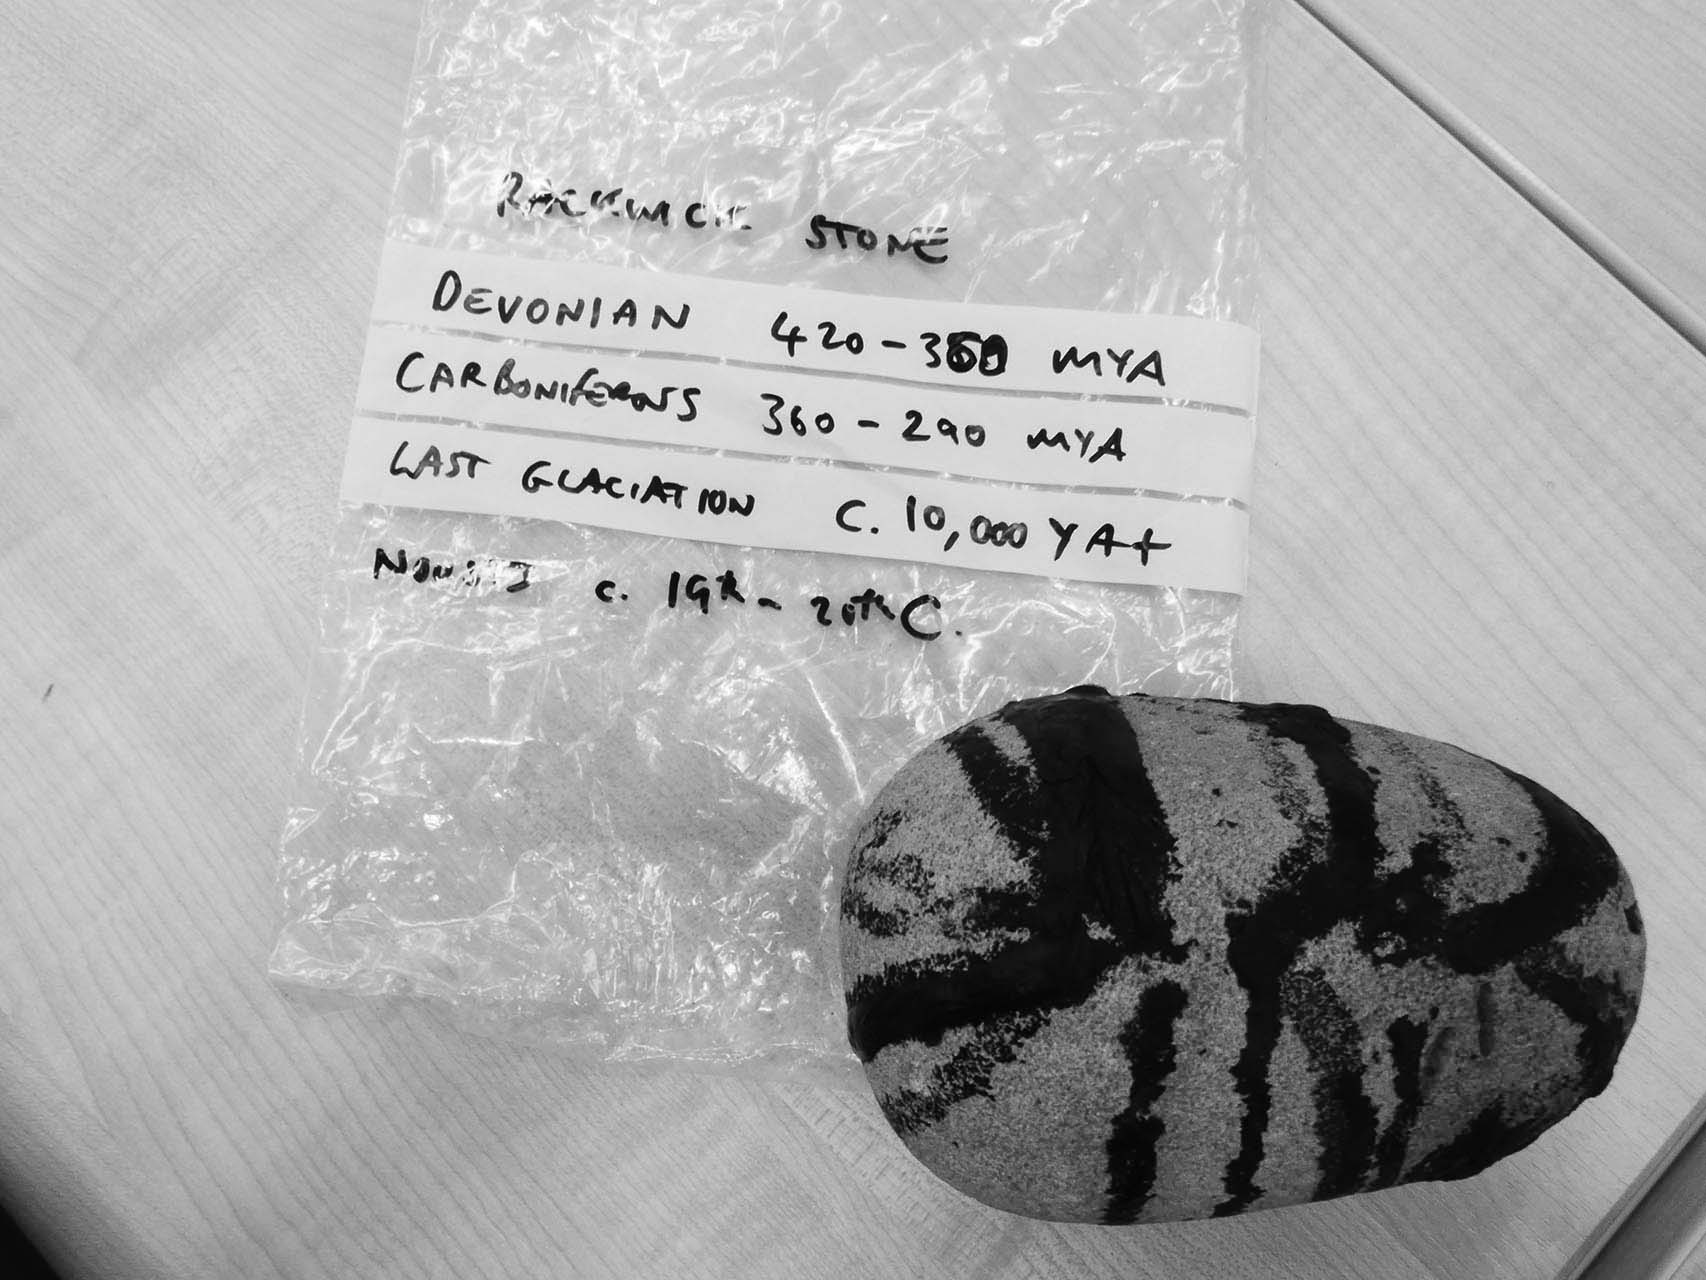 RACKWICK STONE
DEVONIAN 420-360 MYA
CARBONIFEROUS 360-290 MYA
LAST GLACIATION C. 10,000 YA+
c. 19th - 20th C.